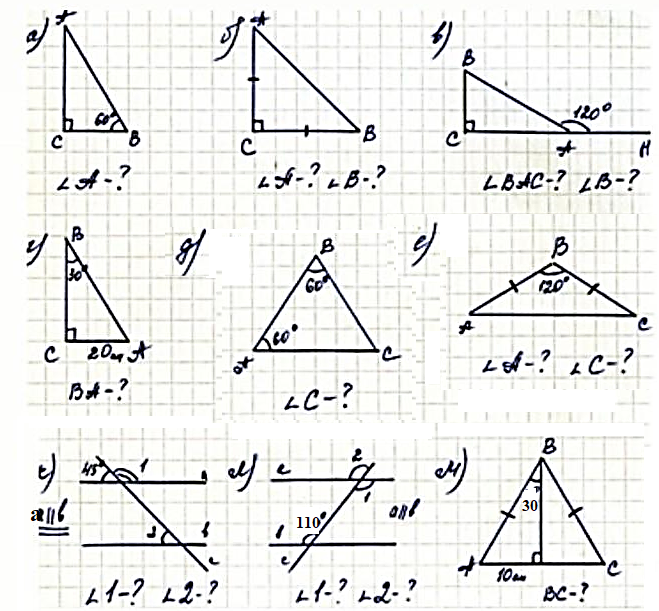 а) A 60° C B
∠A-?
б) A C B
∠A-? ∠B-?
в) B 120° C A H
∠BAC-? ∠B-?
г) B 30° C 20см A
BA-?
д) B 60° A 60° C
∠C-?
е) B 120° A C
∠A-? ∠C-?
45° 1
a||b 2 b
c
∠1-? ∠2-?
л) 2 1
a||b 110°
c
∠1-? ∠2-?
м) B 30 A 10см C
BC-?